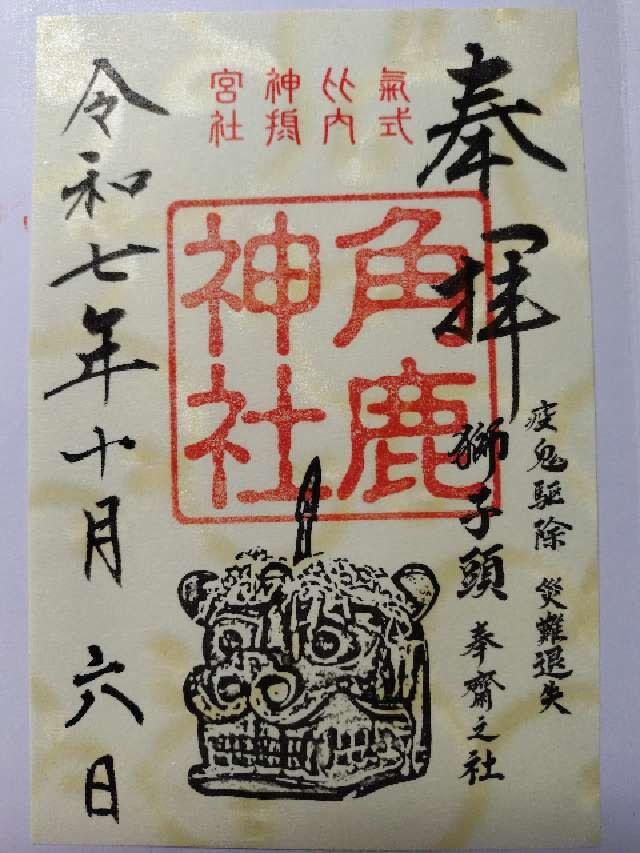 奉拝
疫鬼駆除 災難退失
獅子頭 奉齋之社
氣式
比内
神摂
宮社
角鹿
神社
令和七年十月六日